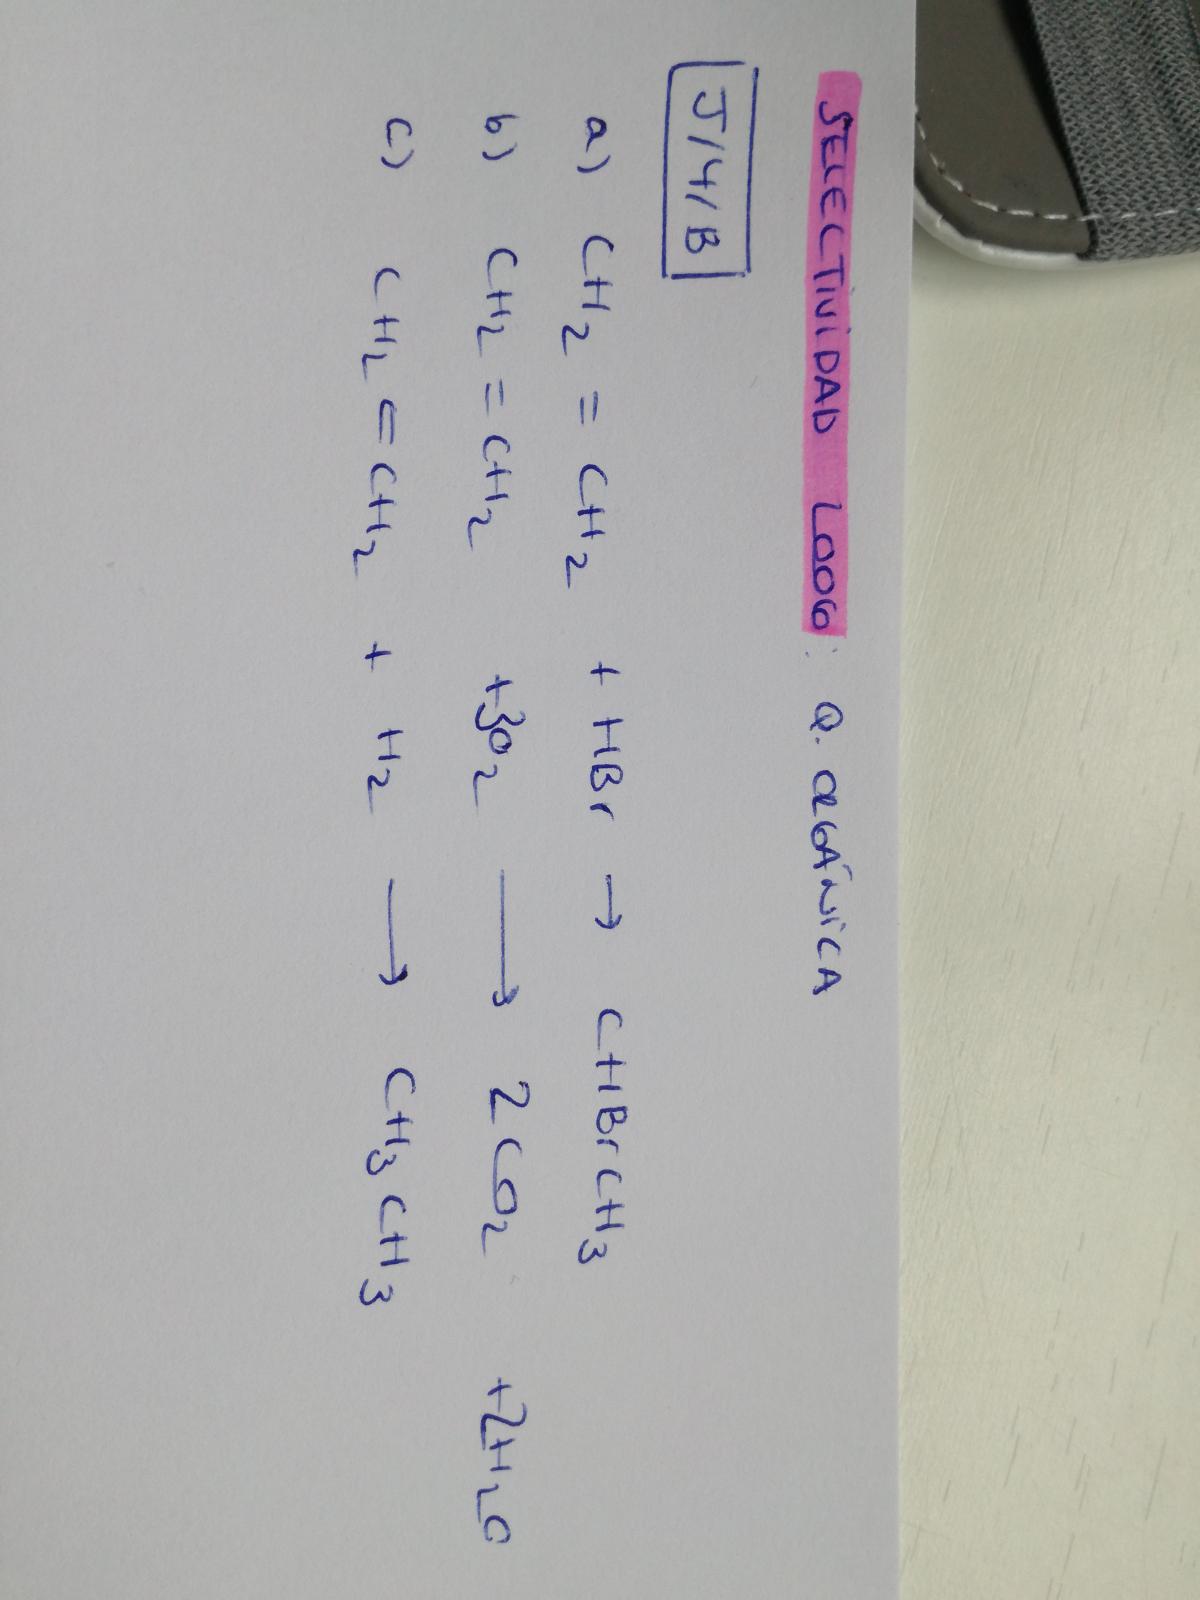 SELECTIVIDAD 2006: Q. ORGÁNICA
J/4/B
a) CH2 = CH2 + HBr → CHBrCH3
b) CH2 = CH2 +3O2 → 2CO2 +2H2O
c) CH2 = CH2 + H2 → CH3CH3